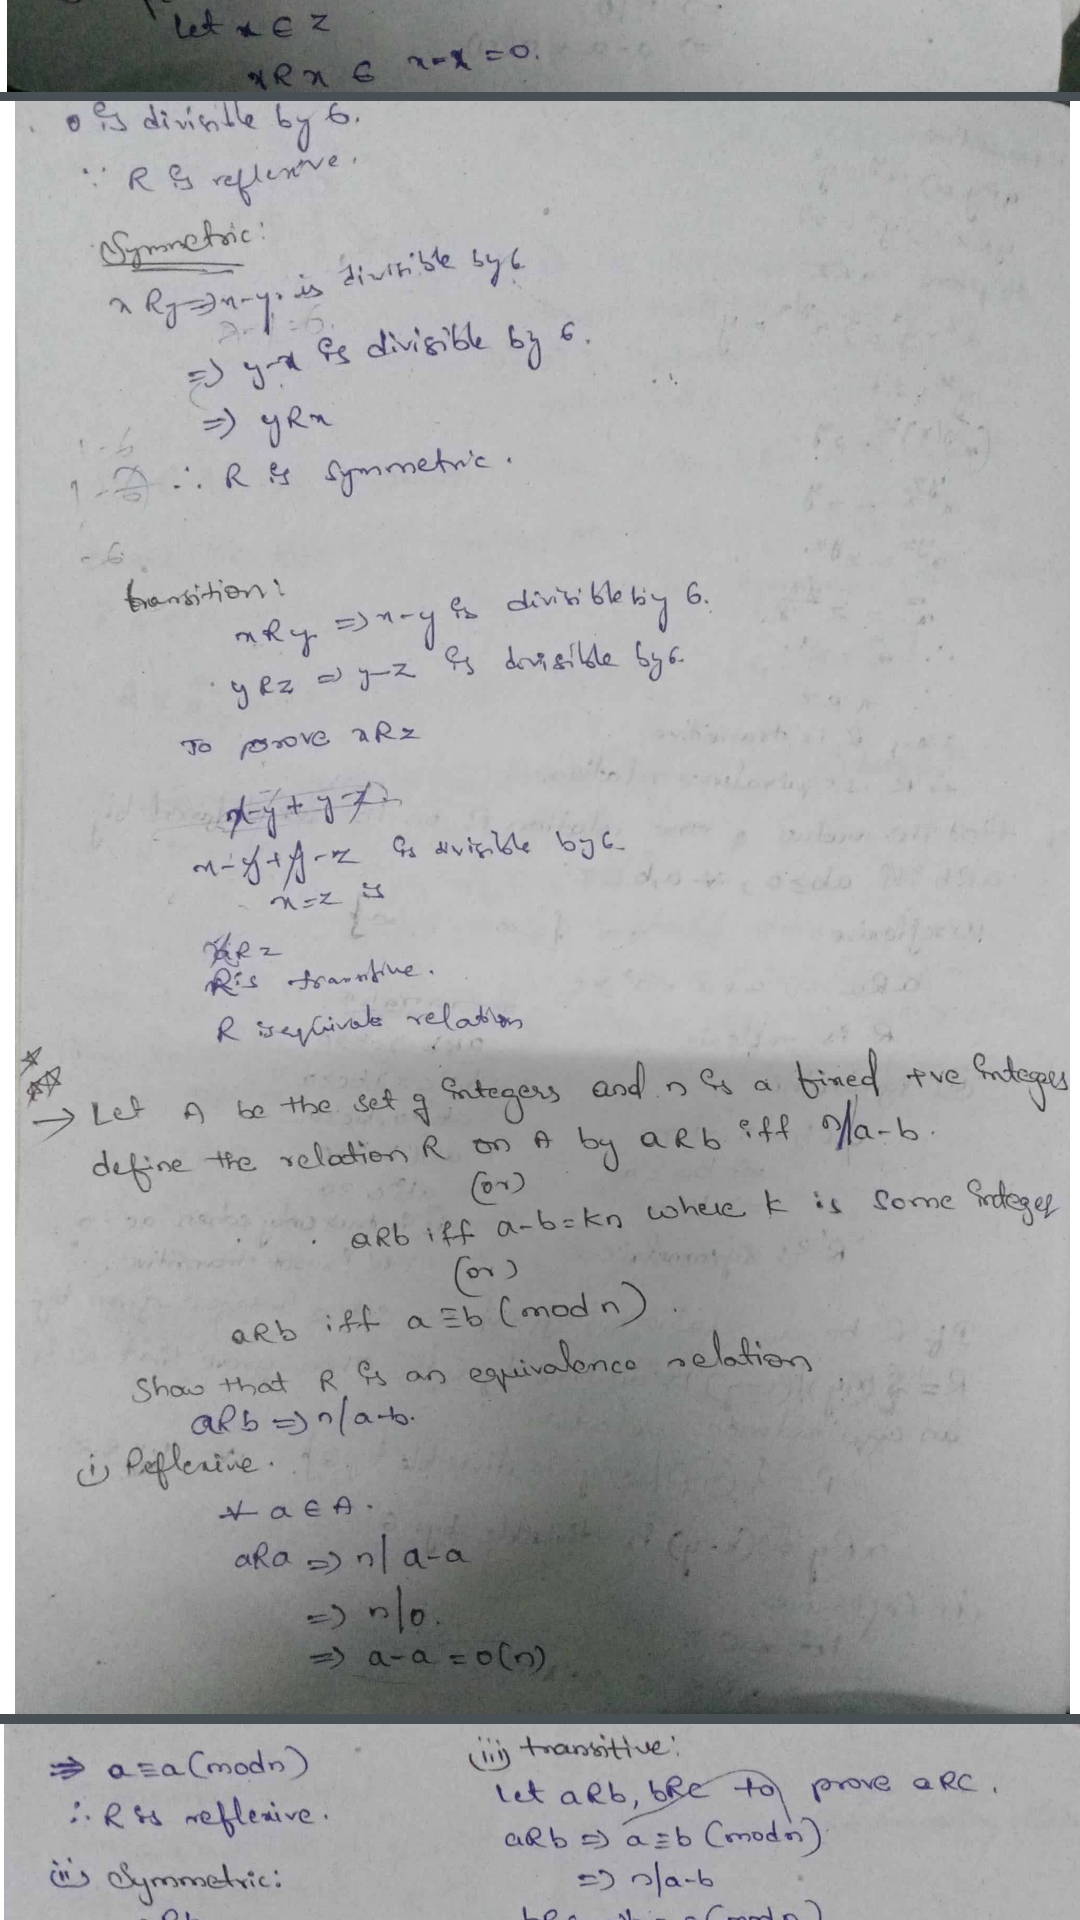 Let x ∈ Z
xRx ∈ x-x = 0.
0 is divisible by 6.
∵ R is reflexive.
Symmetric:
x Ry ⇒ x-y is divisible by 6
⇒ y-x is divisible by 6.
⇒ yRx
∴ R is symmetric.
transition:
xRy ⇒ x-y is divisible by 6.
yRz ⇒ y-z is divisible by 6.
To prove xRz
x-y+y-z
x-y+y-z is divisible by 6
x-z is
xRz
R is transitive.
R is equivale relation
→ Let A be the set of integers and n is a fixed +ve integer
define the relation R on A by aRb iff n/a-b.
(or)
aRb iff a-b=kn where k is some integer
(or)
aRb iff a≡b (mod n).
Show that R is an equivalence relation
aRb ⇒ n/a-b.
(i) Reflexive.
∀ a ∈ A.
aRa ⇒ n/a-a
⇒ n/0.
⇒ a-a = 0(n)
⇒ a≡a(mod n)
∴ R is reflexive.
(ii) Symmetric:
aRb
(iii) transitive:
Let aRb, bRc to prove aRc.
aRb ⇒ a≡b (mod n)
⇒ n/a-b